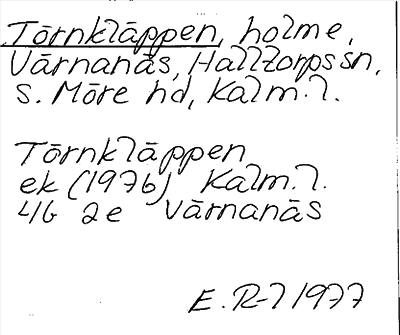 Törnkläppen, holme,
Värnanäs, Halltorps sn,
S. Möre hd, Kalm. l.
Törnkläppen
ek (1976) Kalm. l.
4G 2e Värnanäs
E. R-l 1977